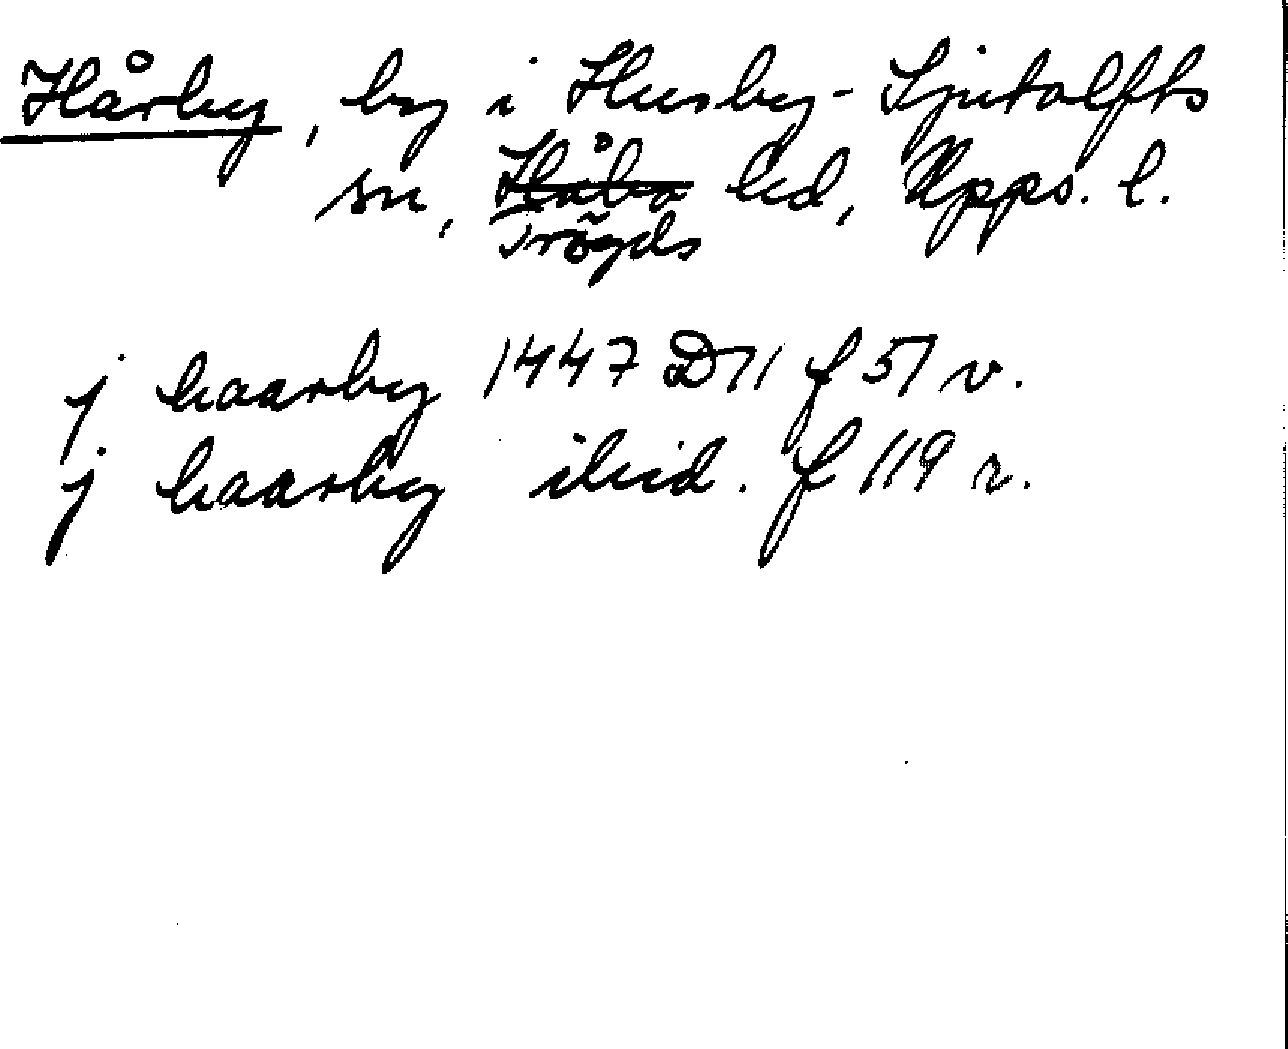 Hårby, by i Husby-Sjutolfts
sn, Håbo hd, Upps. l.
Trögds
j haarby 1447 D11 f 51 v.
j haarby ibid. f 119 r.